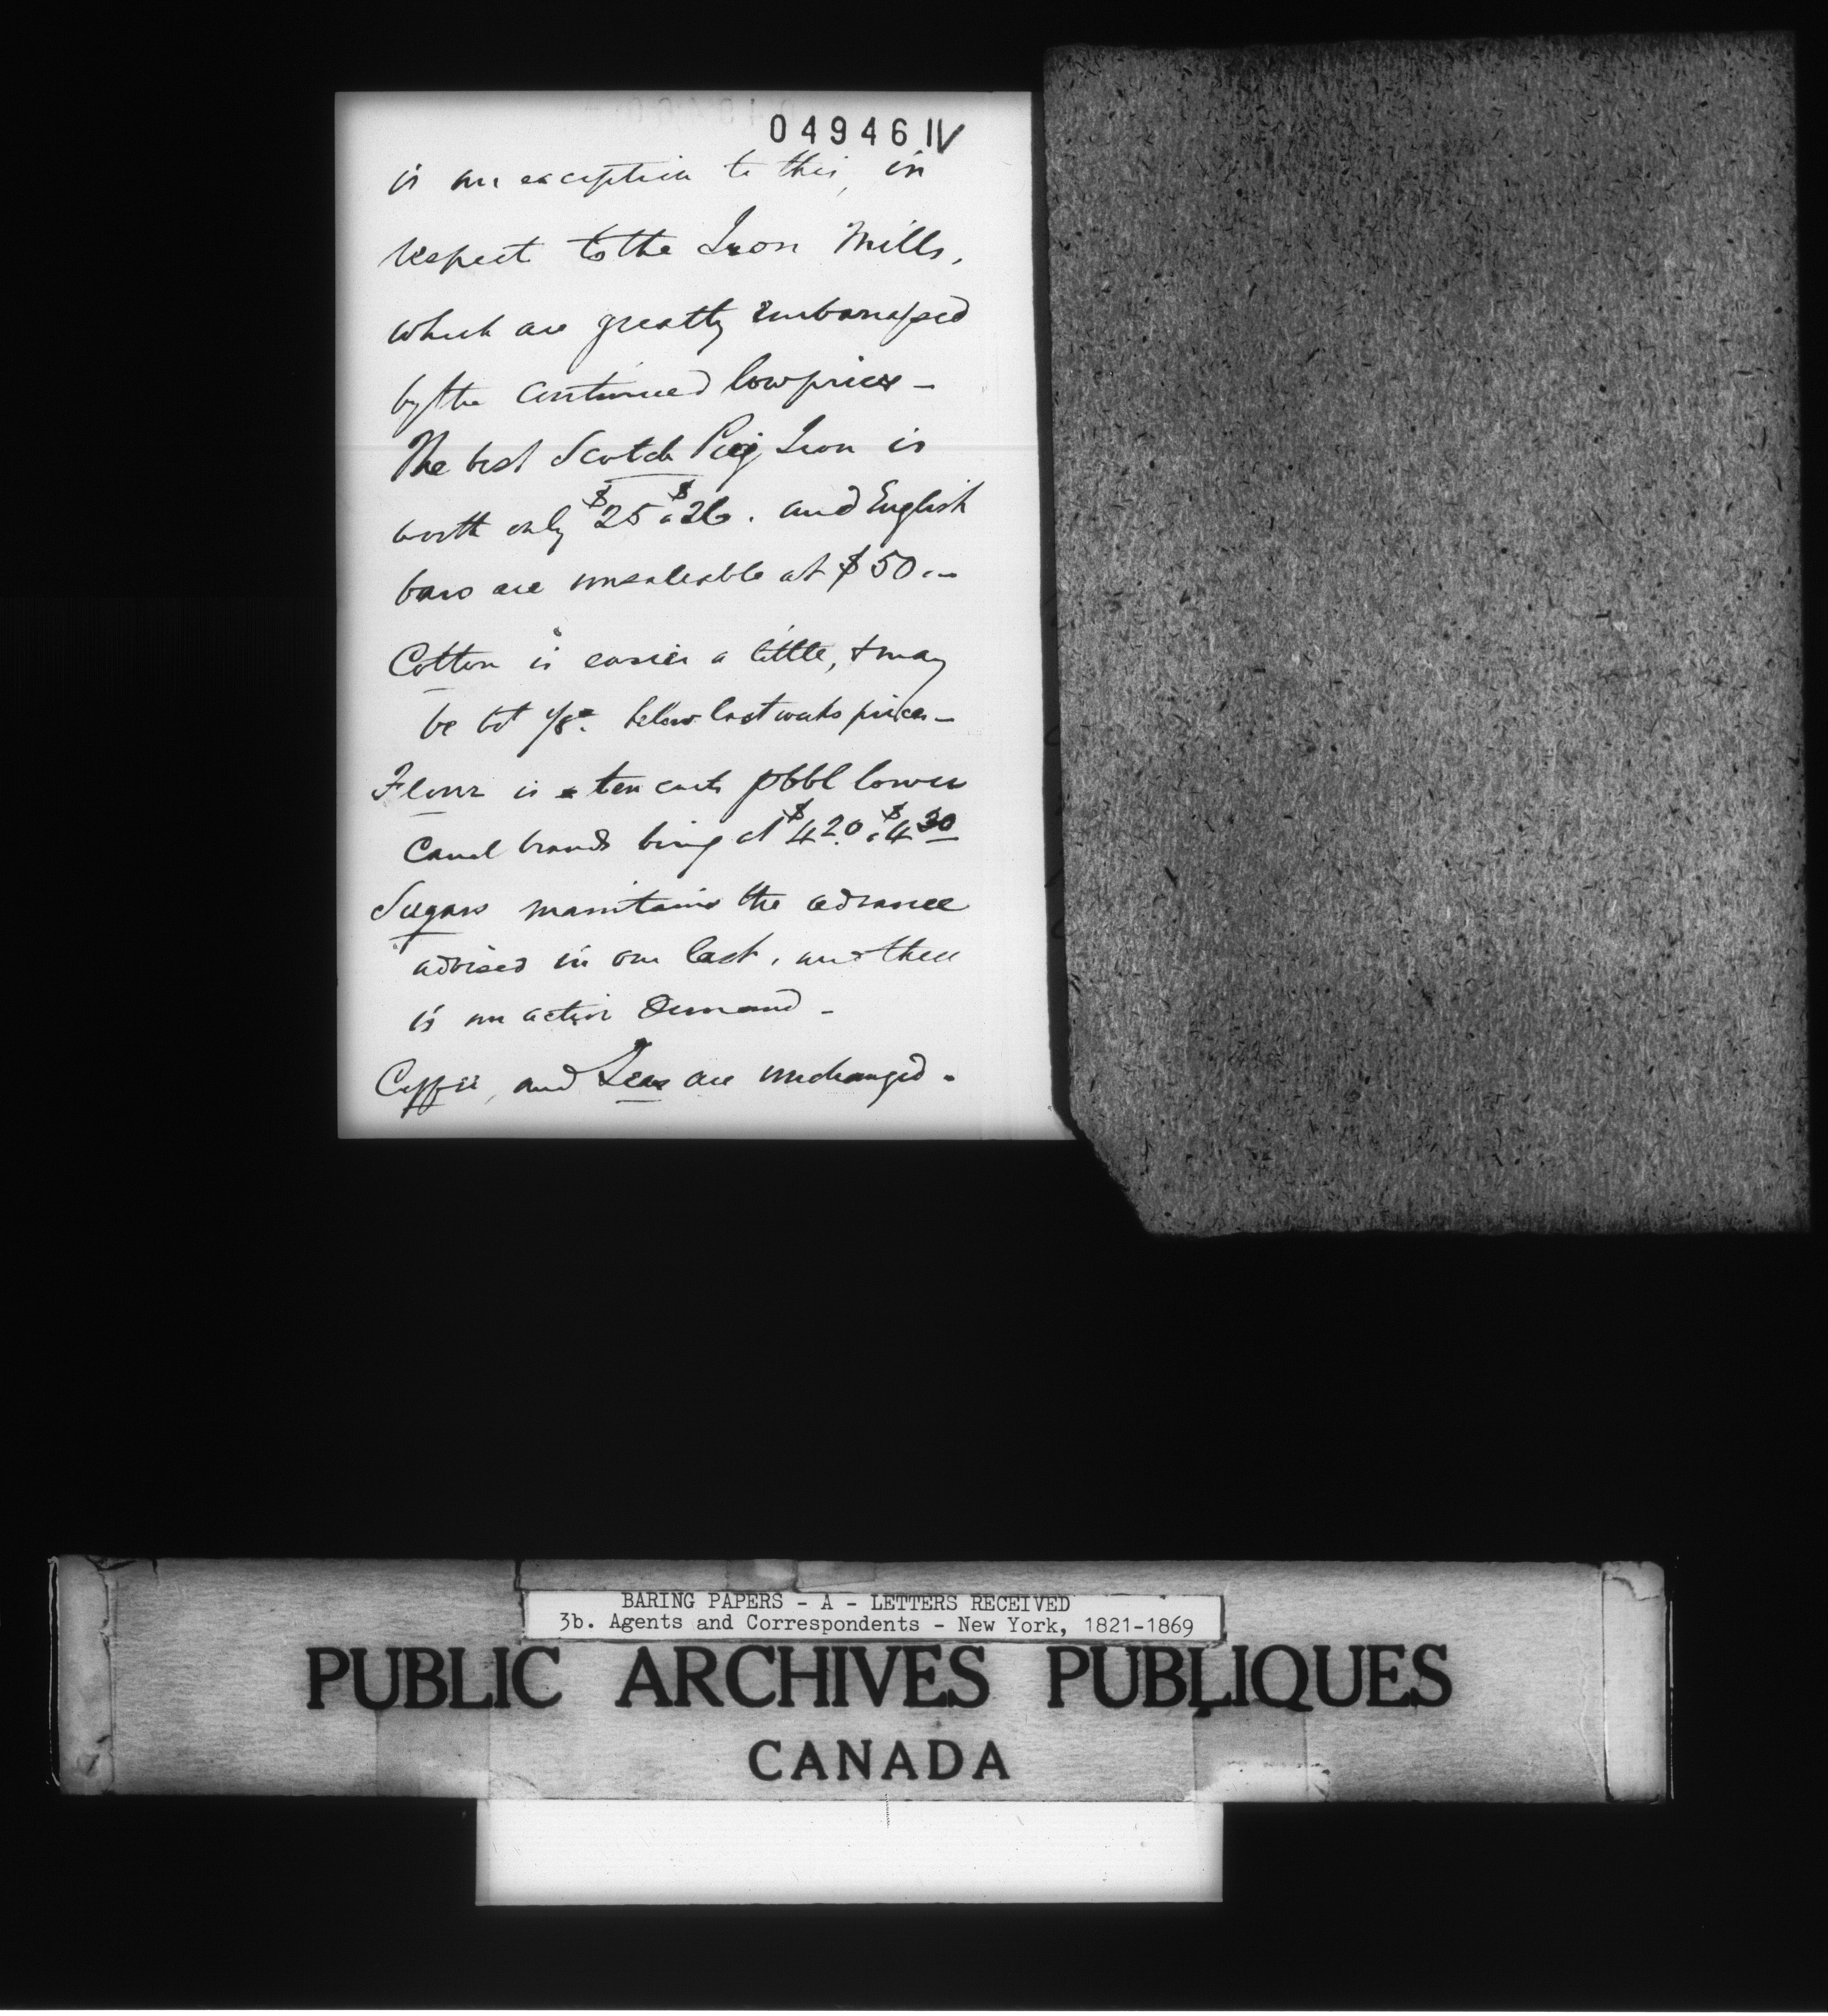 04946 IV
is an exception to this, in
respect to the Iron Mills,
which are greatly embarrassed
by the continued low prices -
The best Scotch Pig Iron is
worth only $25 a $26. and English
bars are unsaleable at $50.-
Cotton is easier a little, & may
be bot 1/8c. below last weeks prices -
Flour is ten cents p bbl lower
Canal brands being at $4 20. a $4 30
Sugars maintains the advance
advised in our last, and there
is an active demand -
Coffee, and Teas are unchanged -
BARING PAPERS - A - LETTERS RECEIVED
3b. Agents and Correspondents - New York, 1821-1869
PUBLIC ARCHIVES PUBLIQUES
CANADA